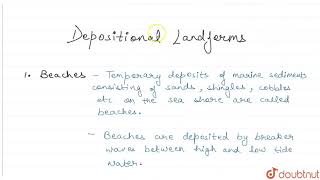 Depositional Landforms
1. Beaches - Temporary deposits of marine sediments
consisting of sands, shingles, cobbles
etc on the sea shore are called
beaches.
- Beaches are deposited by breaker
waves between high and low tide
water.
doubtnut